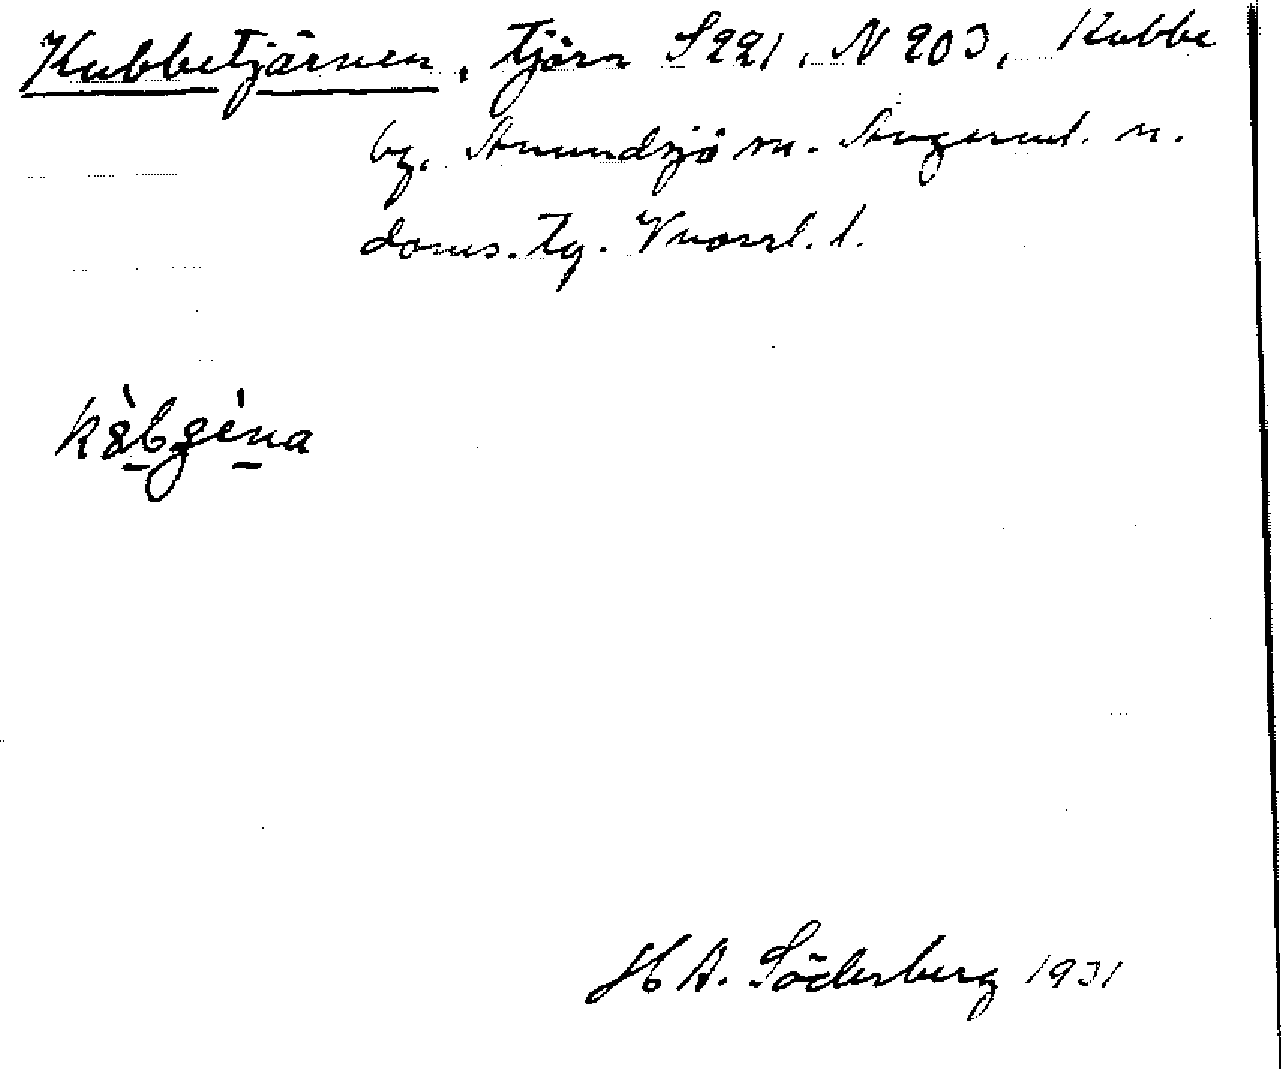 Kubbetjärnen, tjärn S221, N203, Kubbe
by. Anundsjö sn. Ångerml. n.
doms. tg. Vnorrl. l.
H A. Söderberg 1931